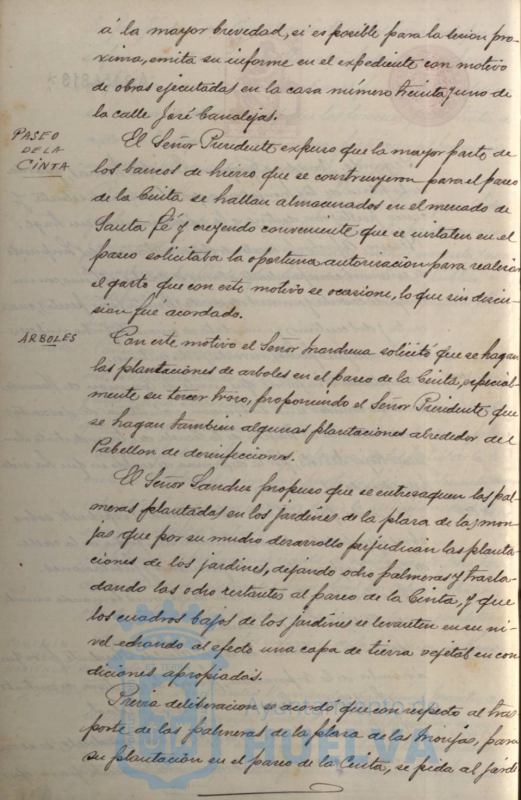 á la mayor brevedad, si es posible para la sesion pro-
xima, emita su informe en el expediente con motivo
de obras ejecutadas en la casa número treinta y uno de
la calle José Canalejas.
PASEO
DE LA
CINTA
El Señor Presidente expuso que la mayor parte de
los bancos de hierro que se construyeron para el paseo
de la Cinta se hallan almacenados en el mercado de
Santa Fé y creyendo conveniente que se instalen en el
paseo solicitaba la oportuna autorizacion para realizar
el gasto que con este motivo se ocasione, lo que sin discu-
sion fué acordado.
ÁRBOLES
Con este motivo el Señor Marchena solicitó que se hagan
las plantaciones de arboles en el paseo de la Cinta, especial-
mente su tercer trozo, proponiendo el Señor Presidente que
se hagan tambien algunas plantaciones alrededor del
Pabellon de desinfecciones.
El Señor Sanchez propuso que se entresaquen las pal-
meras plantadas en los jardines de la plaza de las mon-
jas que por su mucho desarrollo perjudican las planta-
ciones de los jardines, dejando ocho palmeras y trasla-
dando las ocho restantes al paseo de la Cinta, y que
los cuadros bajos de los jardines se levanten en su ni-
vel echando al efecto una capa de tierra vegetal en con-
diciones apropiadas.
Previa deliberacion se acordó que con respecto al tras-
porte de las palmeras de la plaza de las Monjas, para
su plantación en el paseo de la Cinta, se pida al jardi-
Ayuntamiento de
HUELVA